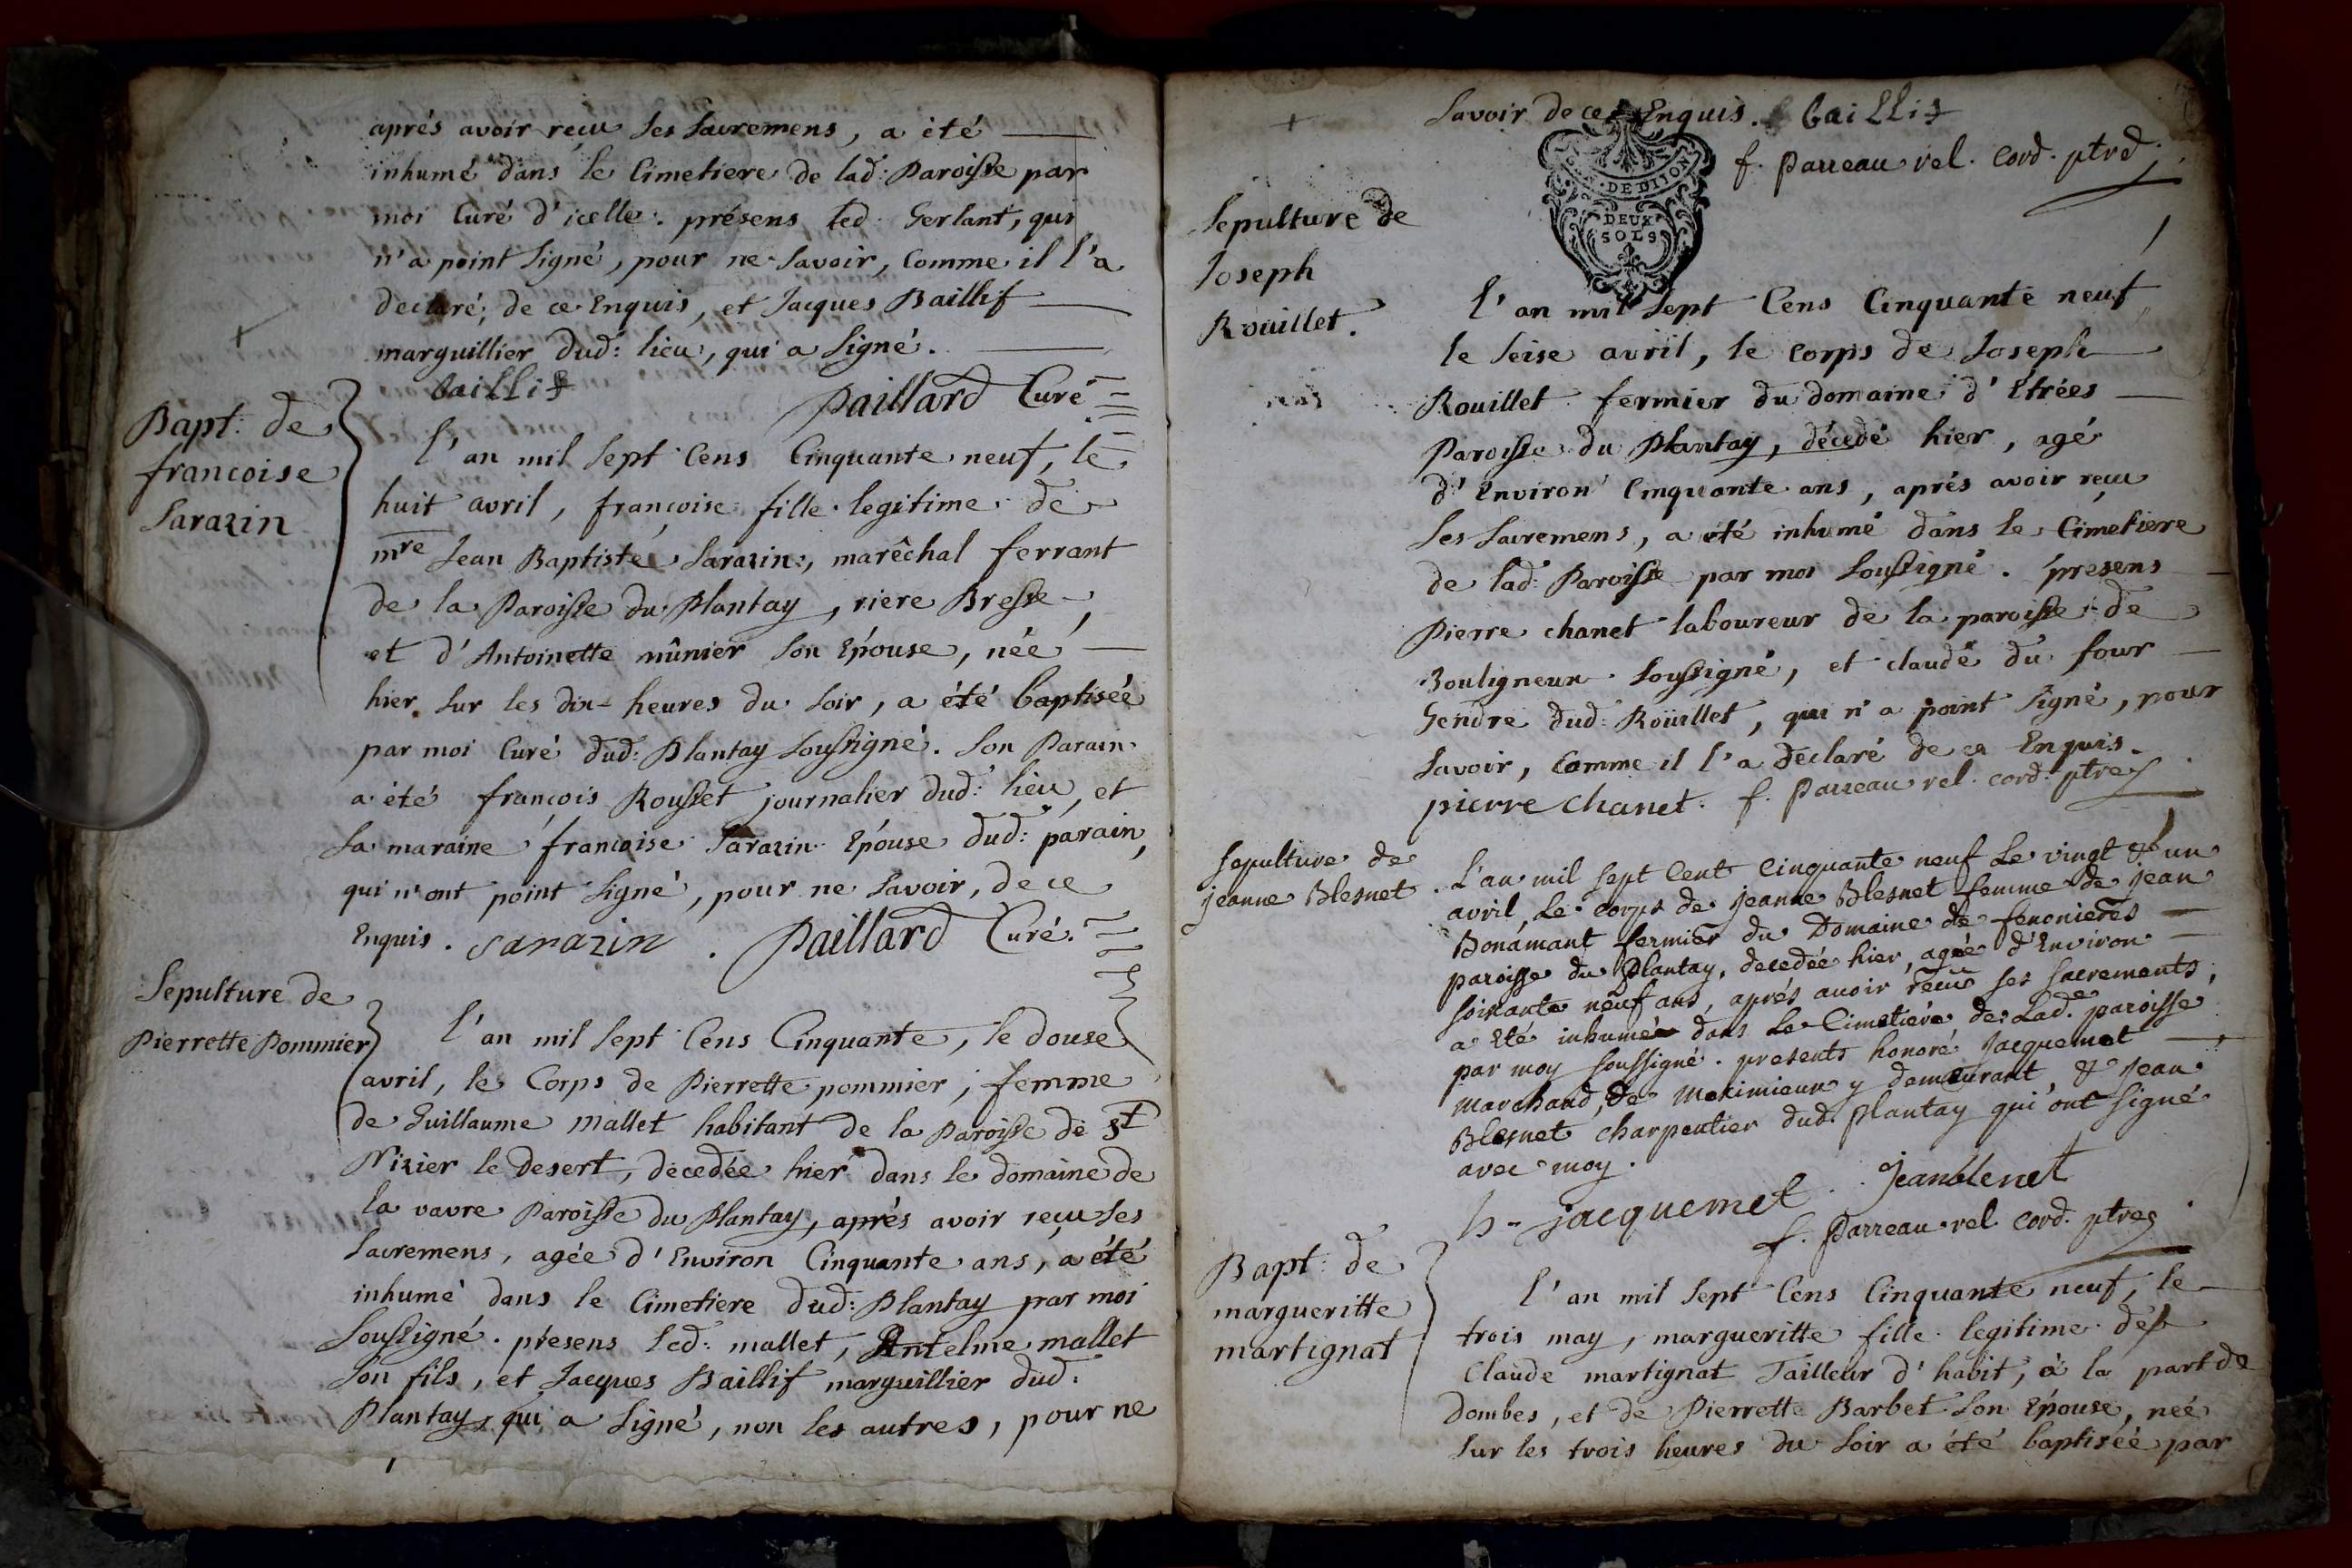 aprés avoir reçu Ses Sacremens, a été
inhumé dans le Cimetiere de lad: Paroisse par
moi Curé d'icelle. présens led. Gerlant, qui
n'a point Signé, pour ne Savoir, Comme il l'a
declaré, de ce Enquis, et Jacques Baillif
marguillier dud: lieu, qui a Signé.
baillif
Paillard Curé
Bapt: de
francoise
Sarazin
l'an mil Sept Cens Cinquante neuf, le
huit avril, françoise fille legitime de
mre Jean Baptiste Sarazin, marêchal ferrant
de la Paroisse du Plantay, riere Bresse,
et d'Antoinette mûnier Son Epouse, née
hier Sur les dix heures du Soir, a été baptisée
par moi Curé dud: Plantay Soussigné. Son Parain
a été françois Rousset journalier dud: lieu, et
Sa maraine françoise Sarazin Epouse dud: parain,
qui n'ont point Signé, pour ne Savoir, de ce
Enquis. Sarazin. Paillard Curé.
Sepulture de
Pierrette Pommier
l'an mil Sept Cens Cinquante, le douse
avril, le Corps de Pierrette pommier, femme
de Guillaume mallet habitant de la Paroisse de St
Nizier le desert, décedée hier dans le domaine de
la vavre Paroisse du Plantay, aprés avoir reçu Ses
Sacremens, agée d'Environ Cinquante ans, a été
inhumé dans le Cimetiere dud: Plantay par moi
Soussigné. présens led: mallet, Antelme mallet
Son fils, et Jacques Baillif marguillier dud:
Plantay, qui a Signé, non les autres, pour ne
Savoir de ce Enquis. baillif
DE DIJON
DEUX
SOLS
f. Parreau rel. Cord. ptre
Sepulture de
Joseph
Rouillet.
l'an mil Sept Cens Cinquante neuf
le Seise avril, le Corps de Joseph
Rouillet fermier du domaine d'Etrées
Paroisse du Plantay, décedé hier, agé
d'Environ Cinquante ans, aprés avoir reçu
Ses Sacremens, a été inhumé dans le Cimetiere
de lad: Paroisse par moi Soussigné. présens
Pierre chanet laboureur de la paroisse de
Bouligneux Soussigné, et claude du four
Gendre dud: Roüillet, qui n'a point Signé, pour
Savoir, Comme il l'a declaré de ce Enquis.
pierre chanet. f. Parreau rel. cord. ptre
Sepulture de
jeanne Blesnet.
L'an mil Sept Cent Cinquante neuf Le vingt & un
avril, Le Corps de jeanne Blesnet femme de jean
Bonamant fermier du Domaine de fenonieres
paroisse du Plantay, decedée hier, agée d'Environ
Soixante neuf ans, aprés avoir reçu Ses Sacrements,
a Eté inhumée dans Le Cimetiére de Lade. paroisse
par moy soussigné. presents honoré jacquemet
marchand, de meximieux y demeurant, & jean
Blesnet charpentier dud. plantay qui ont Signé
avec moy.
h. jacquemet. jeanblenet
f. Parreau rel. Cord. ptre
Bapt: de
margueritte
martignat
l'an mil Sept Cens Cinquante neuf, le
trois may, margueritte fille legitime de
Claude martignat Tailleur d'habit, à la part de
Dombes, et de Pierrette Barbet Son Epouse, neé
Sur les trois heures du Soir a été baptisée par